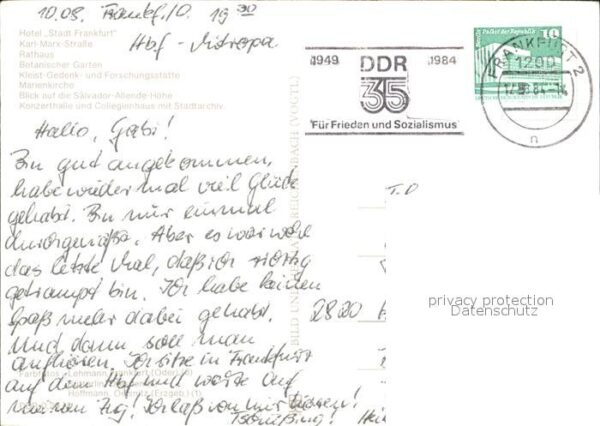 10.08. Frankf./O. 19 30
Hbf - Mitropa
Hotel "Stadt Frankfurt"
Karl-Marx-Straße
Rathaus
Botanischer Garten
Kleist-Gedenk- und Forschungsstätte
Marienkirche
Blick auf die Salvador-Allende-Höhe
Konzerthalle und Collegienhaus mit Stadtarchiv
1949 DDR 1984
35
"Für Frieden und Sozialismus"
Palast der Republik 10
FRANKFURT 2
1200
n
Hallo, Gabi!
Bin gut angekommen,
habe wieder mal viel Glück
gehabt. Bin nur einmal
durchgenäßt. Aber es war wohl
das letzte Mal, daß ich richtig
getrampt bin. Ich habe keinen
Spaß mehr dabei gehabt.
Und dann soll man
aufhören. Ich sitze in Frankfurt
auf dem Hbf und warte auf
meinen Zug! Ich laß von mir hören!
Tschüßing!
T.O
2820
BILD UND
Farbfotos Lehmann, Frankfurt (Oder)
Hoffmann,
privacy protection
Datenschutz